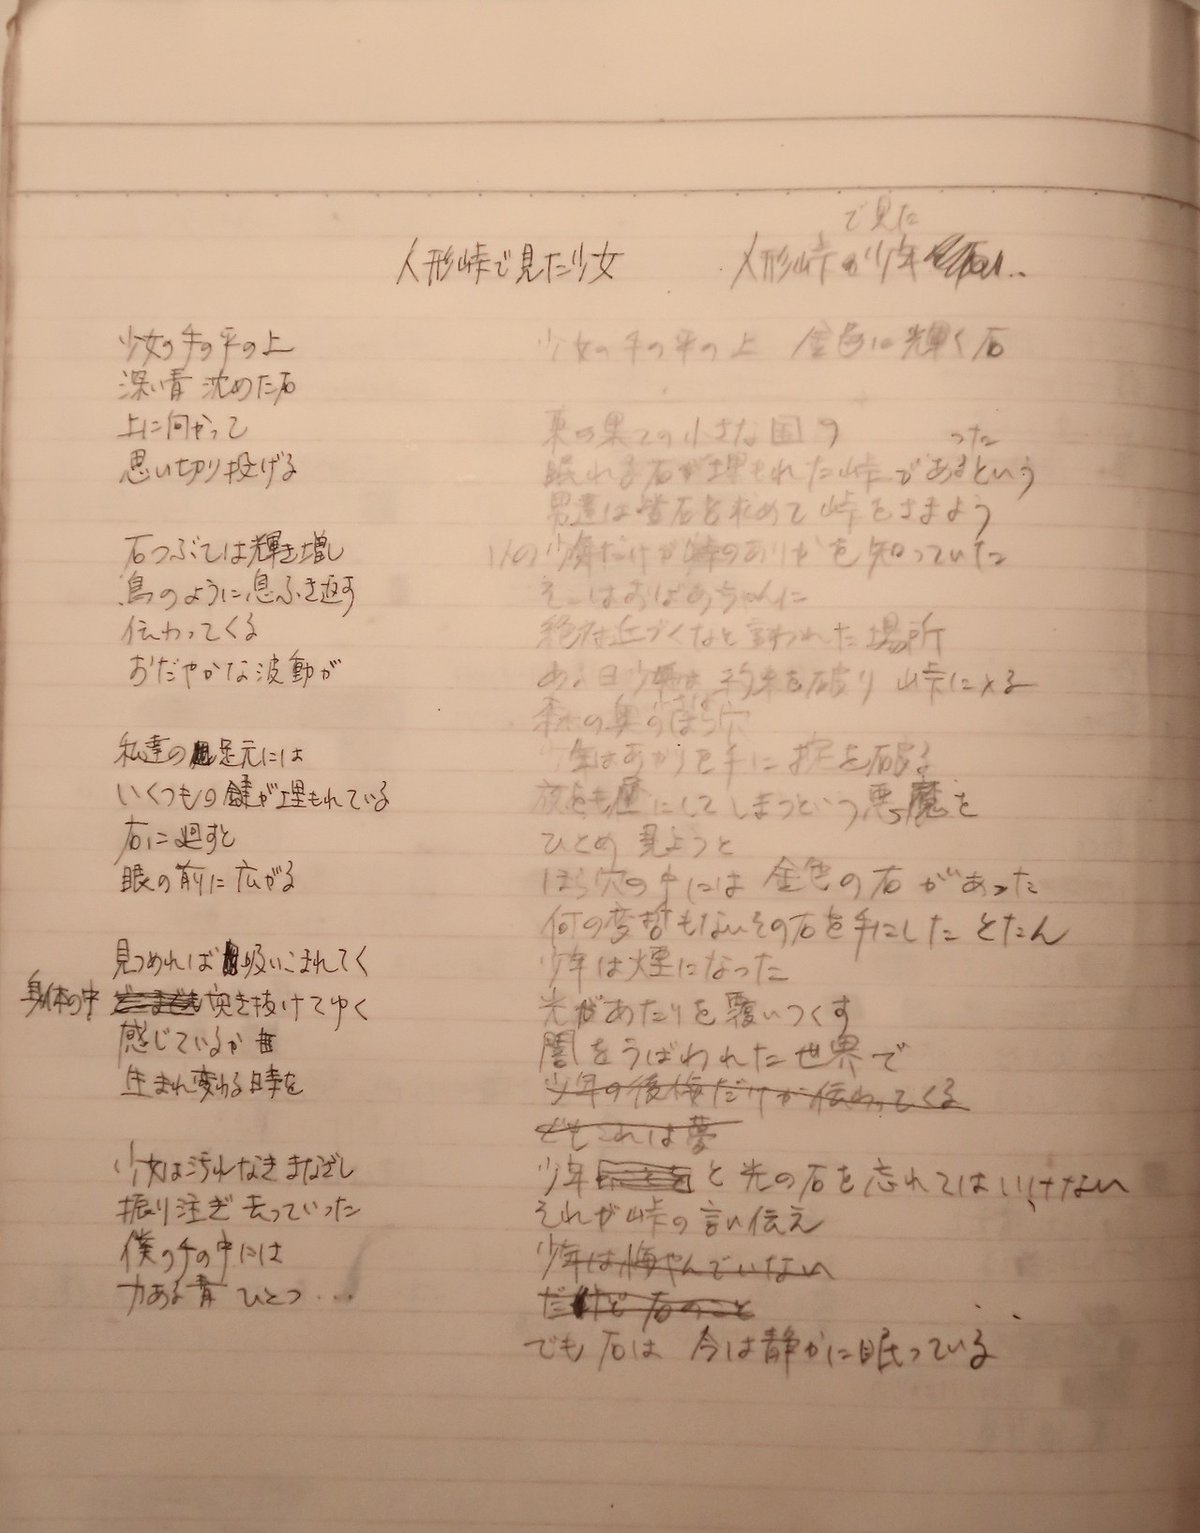 人形峠で見た少女
少女の手の平の上
深い青 沈めた石
上に向かって
思い切り投げる
石つぶては輝き増し
鳥のように息ふき返す
伝わってくる
おだやかな波動が
私達の足元には
いくつもの鍵が埋もれている
石に廻すと
眼の前に広がる
見つめれば吸いこまれてく
身体の中 どこまでも突き抜けてゆく
感じているか
生まれ変わる時を
少女は汚れなきまなざし
振り注ぎ去っていった
僕の手の中には
力ある青 ひとつ・・・
で見た
人形峠の少年
少女の手の平の上 金色に輝く石
東の果ての小さな国の
った
眠れる石が埋もれた峠であるという
男達は石を求めて峠をさまよう
1人の少年だけがのありかを知っていた
そこはおばあちゃんに
絶対近づくなと言われた場所
ある日少年は約束を破り 峠に
森の奥のほら穴
少年はあかりを手に掟を破る
にしてしまうという悪魔を
ひとめ見ようと
ほら穴の中には 金色の石があった
何の変哲もないその石を手にしたとたん
少年は煙になった
光があたりを覆いつくす
闇をうばわれた世界で
少年の後悔だけが伝わってくる
でもこれは夢
少年と光の石を忘れてはいけない
それが峠の言い伝え
少年は悔やんでいない
だけど石のこと
でも石は 今は静かに眠っている